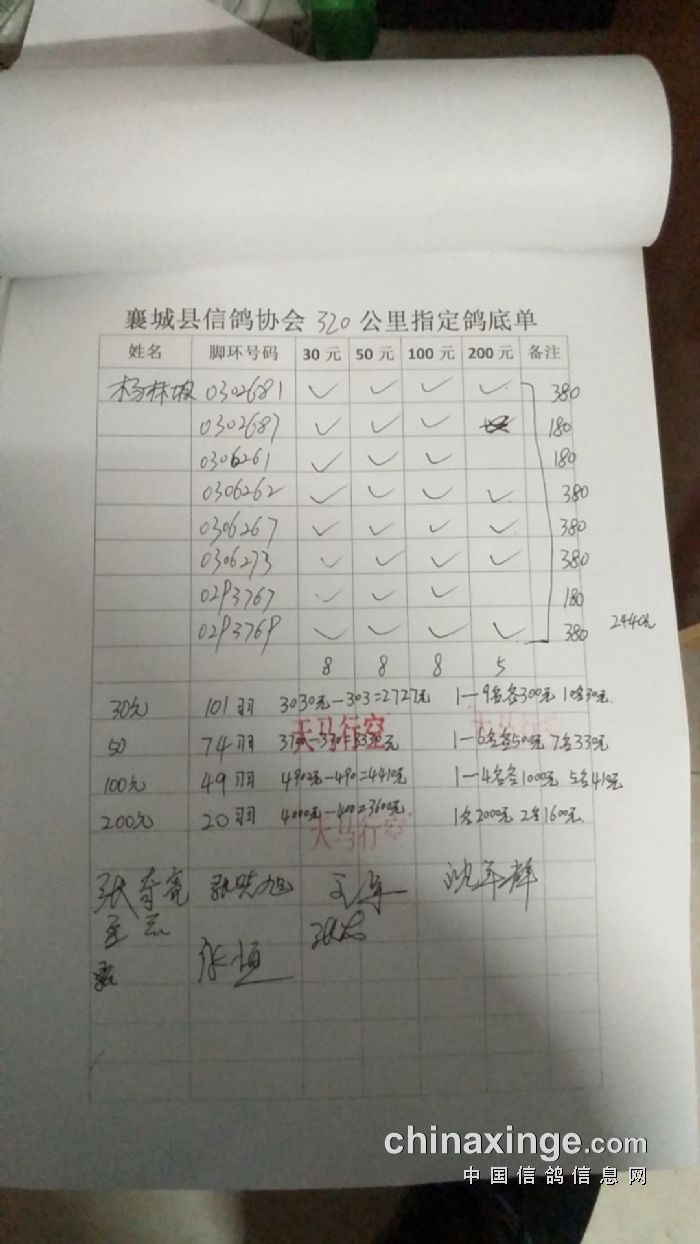 襄城县信鸽协会 320 公里指定鸽底单
姓名 脚环号码 30元 50元 100元 200元 备注
0302681 ✓ ✓ ✓ ✓ 380
0302687 ✓ ✓ ✓ 180
0306261 ✓ ✓ ✓ 180
0306262 ✓ ✓ ✓ ✓ 380
0306267 ✓ ✓ ✓ ✓ 380
0306273 ✓ ✓ ✓ ✓ 380
0293767 ✓ ✓ ✓ 180
0293769 ✓ ✓ ✓ ✓ 380 2440元
8 8 8 5
30元 101羽 3030元-303=2727元 1-9名各300元 10名30元.
50 74羽 1-6名各500元 7名330元
天马行空
100元 49羽 4900元-490=4410元 1-4名各1000元 5名410元
200元 20羽 4000元-400=3600元. 1名2000元 2名1600元.
天马行空
张 亮 张 旭 王 沈
张恒
chinaxinge.com
中国信鸽信息网